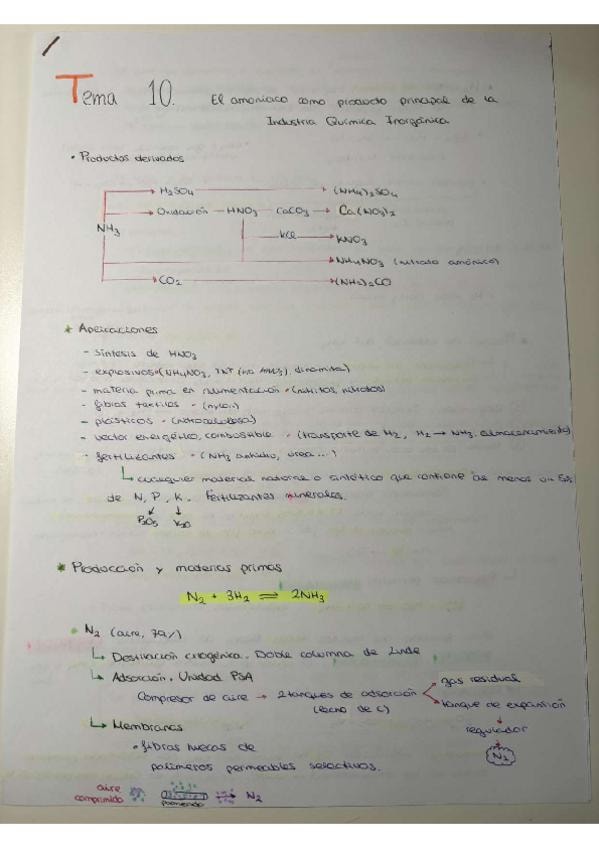 Tema 10. El amoniaco como producto principal de la
Industria Química Inorgánica
• Productos derivados
H2SO4 (NH4)2SO4
Oxidación HNO3 CaCO3 Ca(NO3)2
NH3
KCl KNO3
NH4NO3 (nitrato amónico)
CO2 (NH2)2CO
* Aplicaciones
- síntesis de HNO3
- explosivos • (NH4NO3, TNT (no NH3), dinamita)
- materia prima en alimentación • (nitritos, nitratos)
- fibras textiles • (nylon)
- plásticos • (nitrocelulosa)
- vector energético, combustible • (transporte de H2, H2 → NH3, almacenamiento)
- fertilizantes • (NH3 anhidro, urea ...)
cualquier material natural o sintético que contiene al menos un 5%
de N, P, K. Fertilizantes minerales.
P2O5 K2O
* Producción y materias primas
N2 + 3H2 ⇌ 2NH3
* N2 (aire, 79%)
Destilación criogénica. Doble columna de Linde
Adsorción. Unidad PSA
gas residual
Compresor de aire → 2 tanques de adsorción
tanque de expansión
(lecho de C)
regulador
Membranas
N2
• fibras huecas de
polímeros permeables selectivos.
aire
comprimido → N2